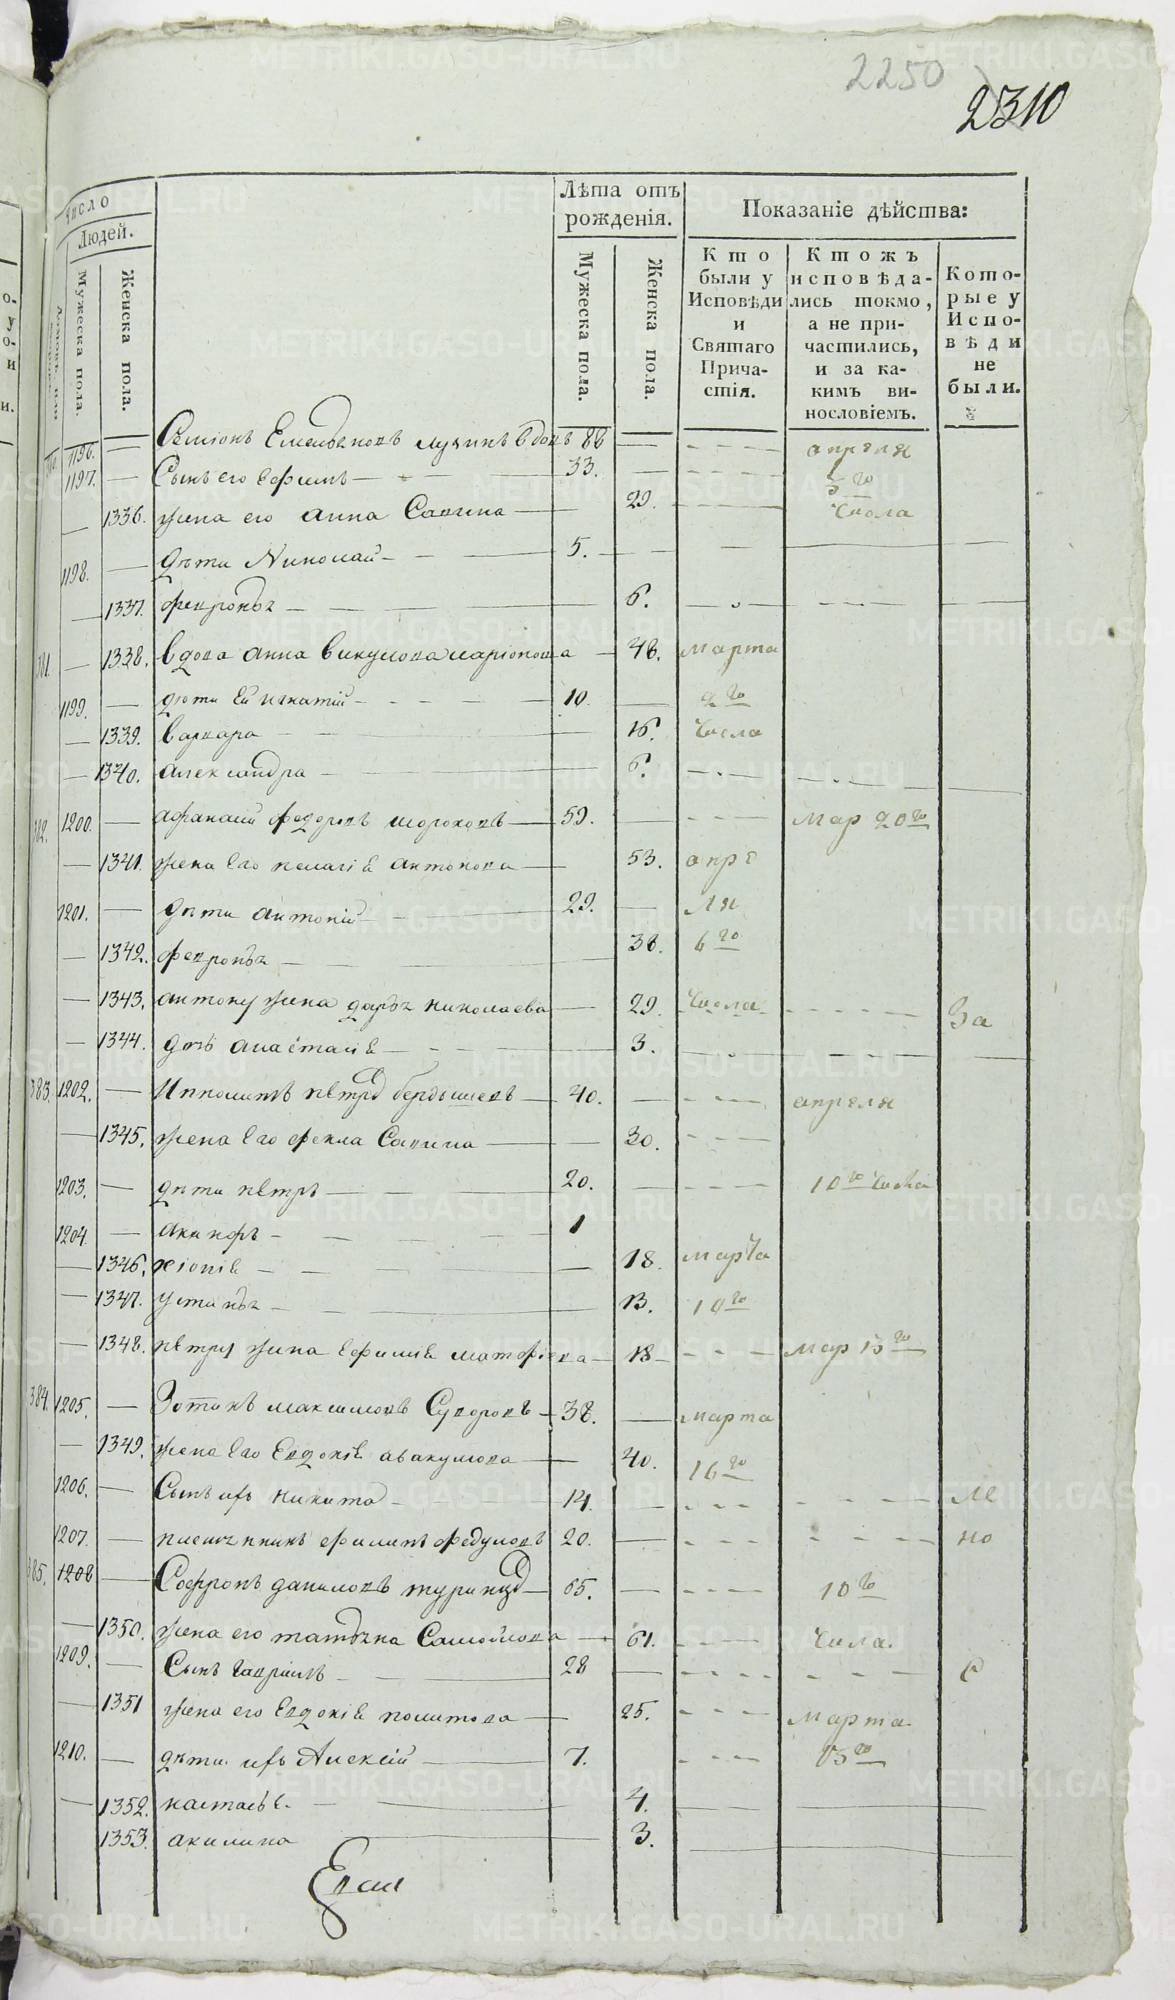 2250
2310
Число
Людей.
Лѣта отъ
рожденія.
Показаніе дѣйства:
Мужеска пола.
Женска пола.
Мужеска пола.
Женска пола.
Кто
были у
Исповѣди
и
Святаго
Прича-
стія.
Ктожъ
исповѣда-
лись токмо,
а не при-
частились,
и за ка-
кимъ ви-
нословіемъ.
Кото-
рые у
Испо-
вѣди
не
были.
1196. Семіонъ Емельяновъ вдовъ апреля
1197. Сынъ его Ефимъ 33. 5го
1336. жена его Анна Савина 29. числа
1198. дѣти Николай 5.
1337. Февронья 6.
381. 1338. вдова анна викулова ларіонова 48. марта
1199. дѣти ей игнатій 10. 9го
1339. варвара 16. числа
1340. александра 6.
382. 1200. афанасій федоровъ шороховъ 59. мар 20го
1341. жена его пелагіѣ антонова 53. апре
1201. дѣти антоній 29. ля
1342. февронья 38. 6го
1343. антону жена дарья николаева 29. числа За
1344. дочь анастасіѣ 3.
383. 1202. Ипполитъ петровъ бердышевъ 40. апреля
1345. жена его фекла Савина 30.
1203. дѣти петръ 20. 10го числа
1204. акинфъ 1
1346. хіоніѣ 18. марта
1347. устинья 13. 10го
1348. петру жена ефиміѣ матфіева 18 мар 13го
384. 1205. Зотикъ максимовъ Суворовъ 38. марта
1349. жена его Евдокіѣ авакумова 40. 16го
1206. Сынъ ихъ никита 14. ле
1207. племянникъ филипъ федуловъ 20. но
385. 1208 Софронъ даниловъ 65. 10го
1350. жена его татьяна Самойлова 61. числа.
1209. Сынъ гавріилъ 28 с
1351 жена его Евдокіѣ политова 25. марта
1210. дѣти ихъ Алексій 7. 13го
1352. настасьѣ. 4.
1353. акилина 3.